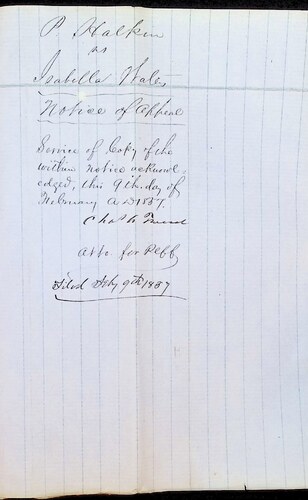 P. Halkin
vs
Isabella Wales
Notice of Appeal
Service of Copy of the
within notice acknowl-
edged, this 9th day of
February A D 1857.
Chas
atty. for Plff
Filed Feby 9th 1857